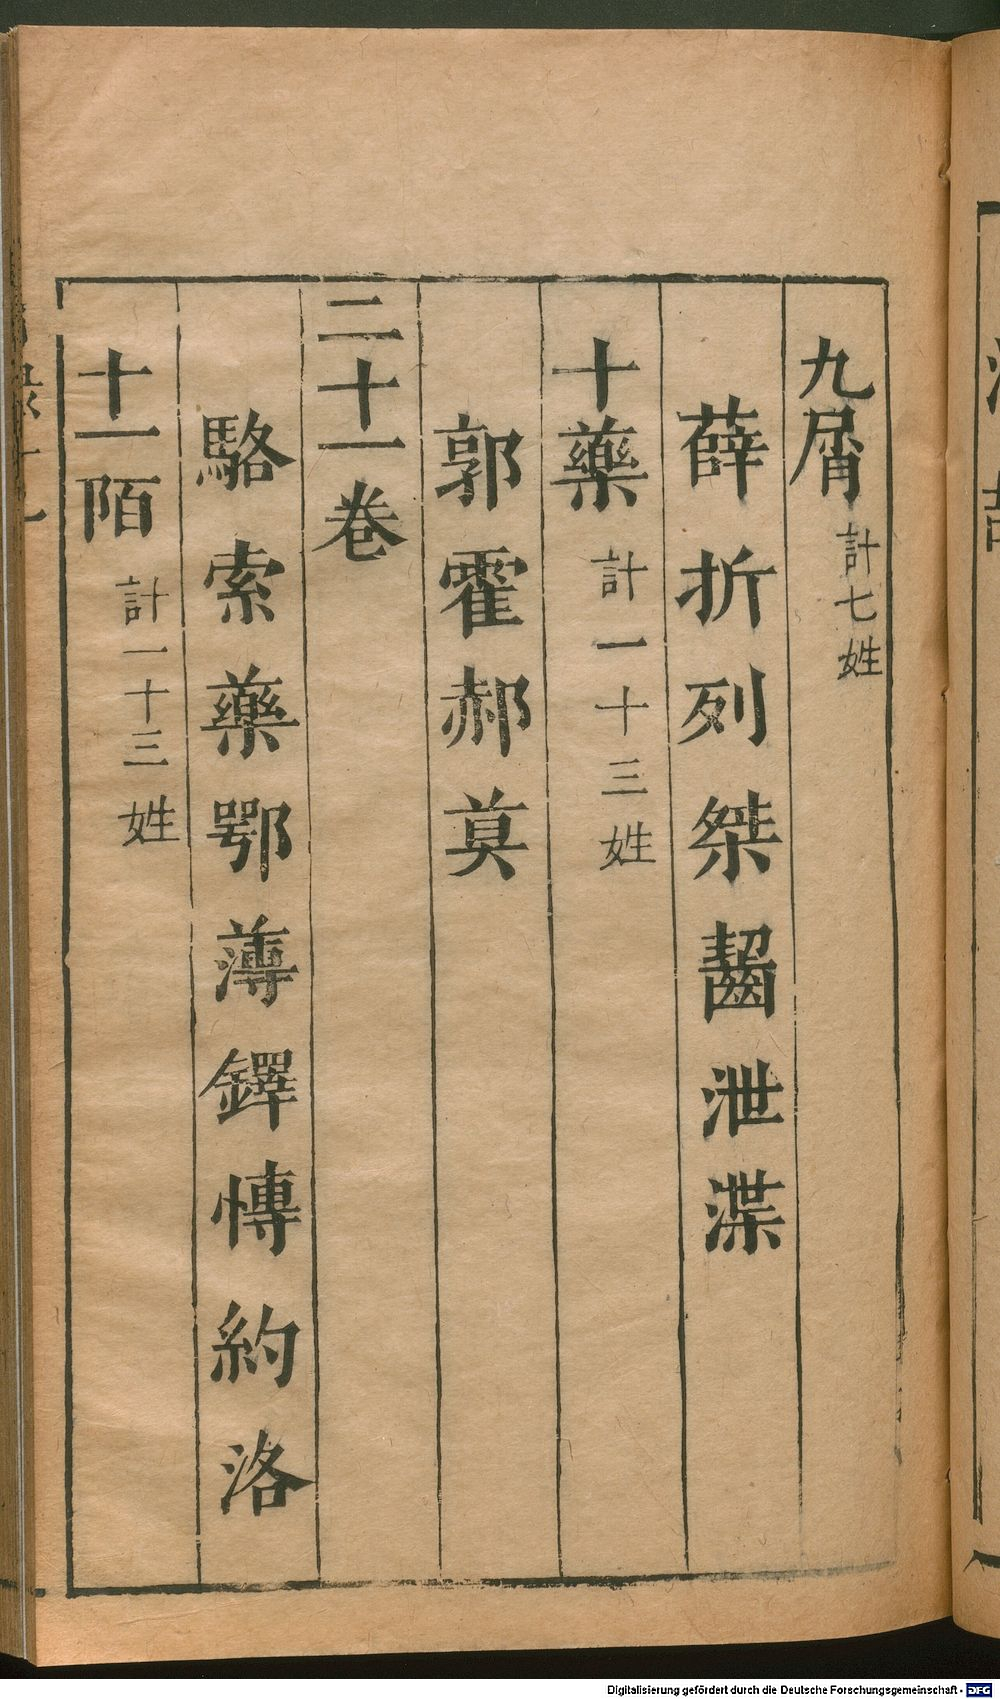 九屑 計七姓
薛折列桀齧泄渫
十藥 計一十三姓
郭霍郝莫
二十一卷
駱索藥鄂薄鐸愽約洛
十一陌 計一十三姓
Digitalisierung gefördert durch die Deutsche Forschungsgemeinschaft - DFG